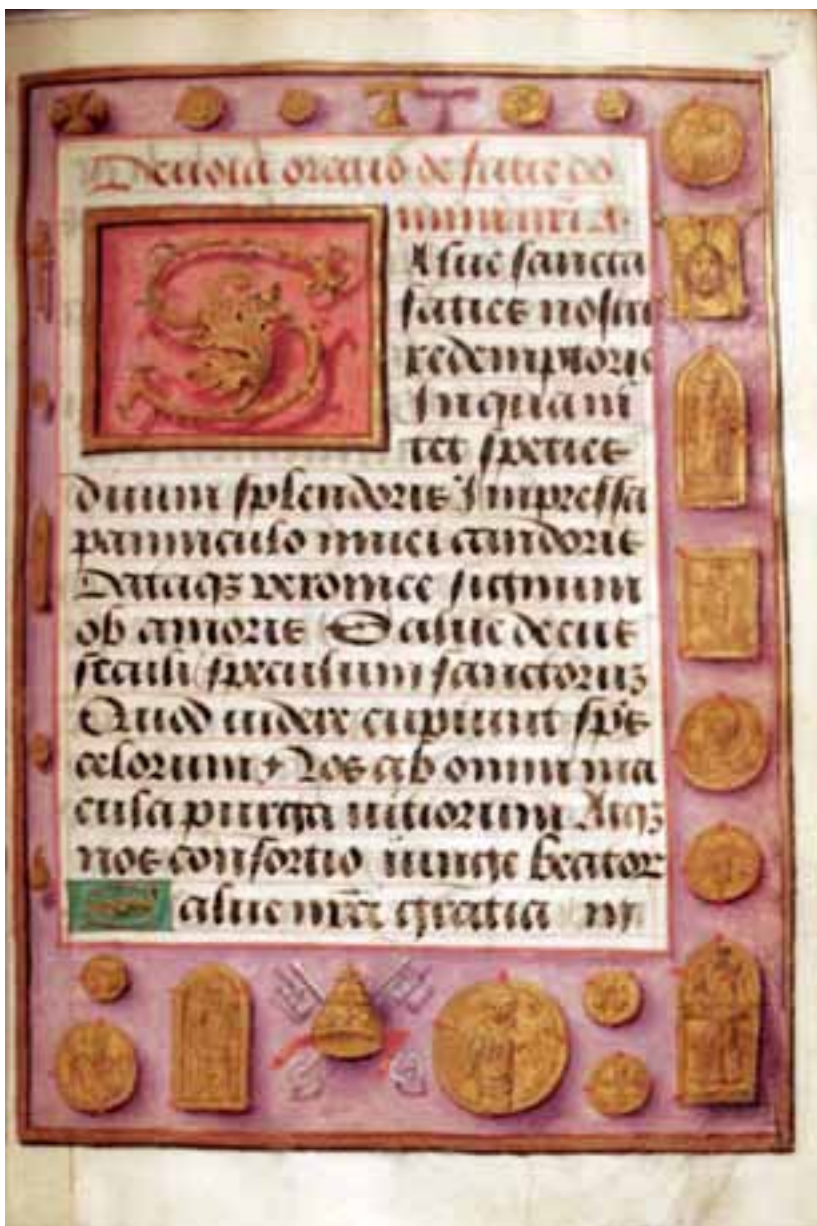 Deuota oratio de facie do
mini nri A.
Salue sancta
faties nostri
redemptoris
In qua ni
tet speties
diuini splendoris Impressa
panniculo niuei candoris
Dataqʒ veronice signum
ob amoris Salue decus
seculi speculum sanctoruʒ
Quod videre cupiunt sps
celorum Nos ab omni ma
cula purga uitiorum Atqʒ
nos consortio iunge beator
Salue nra gratia